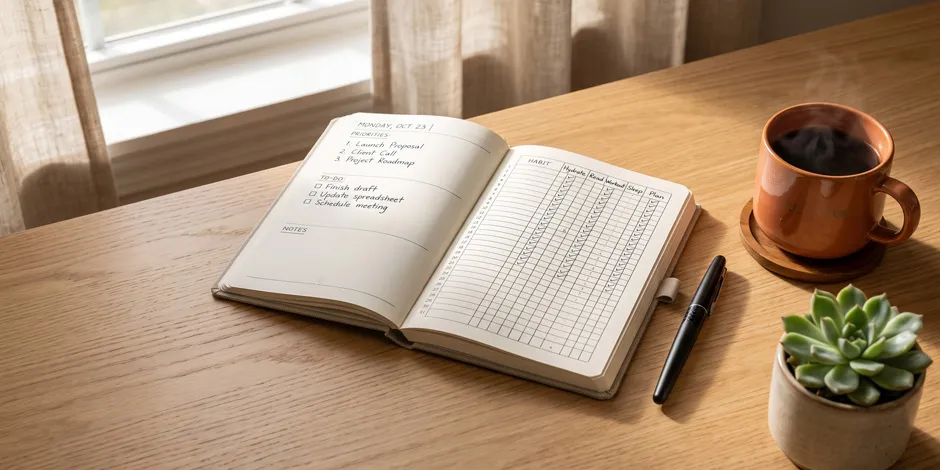 MONDAY, OCT 23
PRIORITIES:
1. Launch Proposal
2. Client Call
3. Project Roadmap
TO-DO:
☐ Finish draft
☐ Update spreadsheet
☐ Schedule meeting
NOTES
HABIT Hydrate Read Workout Sleep Plan